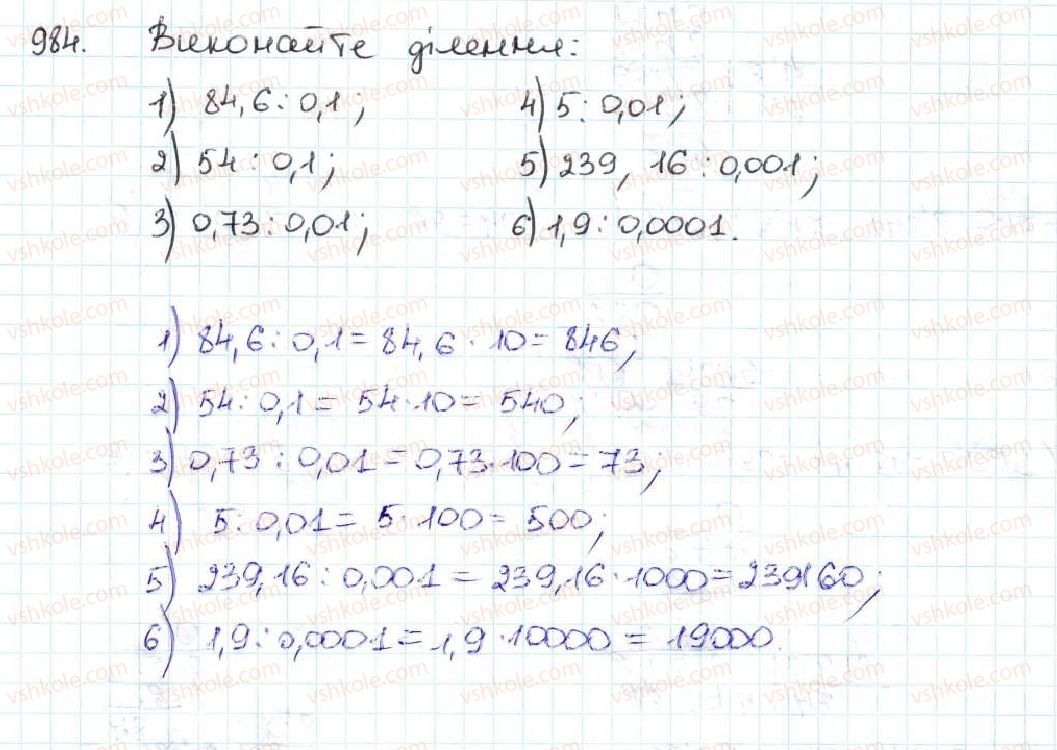 984. Виконайте ділення:
1) 84,6 : 0,1; 4) 5 : 0,01;
2) 54 : 0,1; 5) 239, 16 : 0,001;
3) 0,73 : 0,01; 6) 1,9 : 0,0001.
1) 84,6 : 0,1 = 84,6 · 10 = 846;
2) 54 : 0,1 = 54 · 10 = 540;
3) 0,73 : 0,01 = 0,73 · 100 = 73;
4) 5 : 0,01 = 5 · 100 = 500;
5) 239,16 : 0,001 = 239,16 · 1000 = 239160;
6) 1,9 : 0,0001 = 1,9 · 10000 = 19000.
vshkole.com